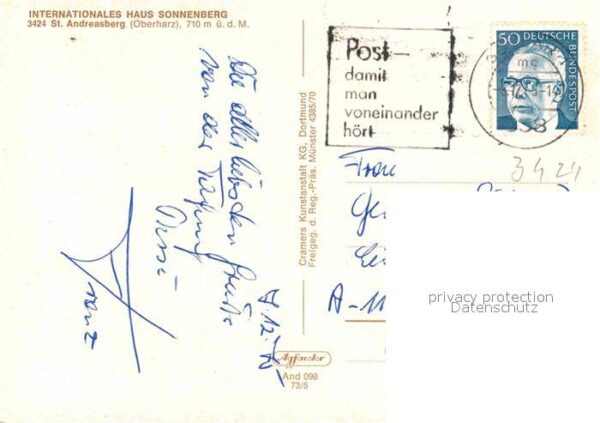 INTERNATIONALES HAUS SONNENBERG
3424 St. Andreasberg (Oberharz), 710 m ü. d. M.
Die allerliebsten Grüße
von der Tagung
Franz
7.12.75
Cramers Kunstanstalt KG, Dortmund
Freigeg. d. Reg.-Präs. Münster 4385/70
Agfacolor
And 098
73/5
Post-
damit
man
voneinander
hört
50 DEUTSCHE
BUNDESPOST
mc
3424
Frau
A-11
privacy protection
Datenschutz